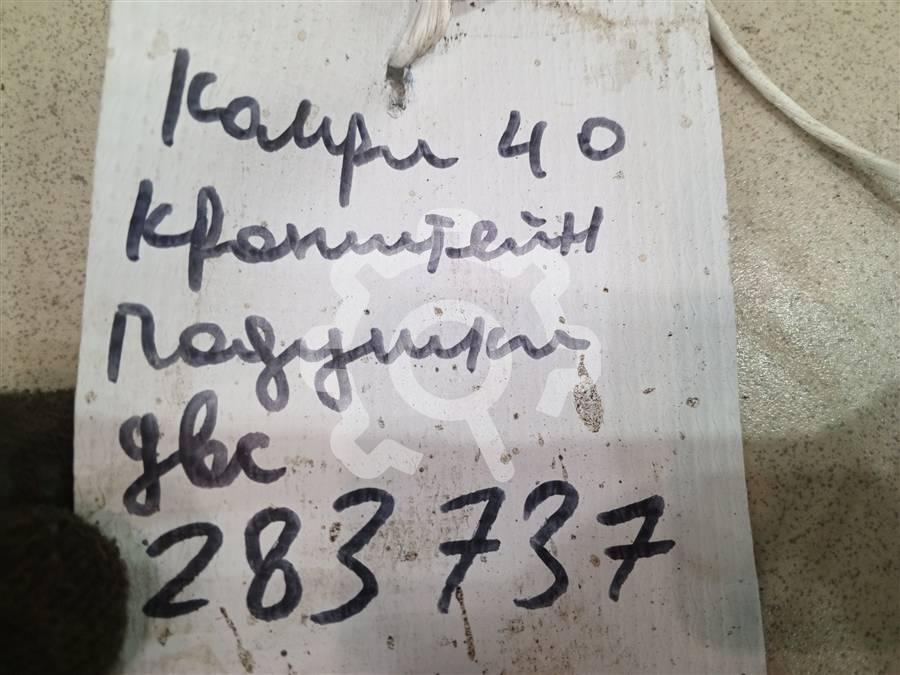 Камри 40
Кронштейн
Подушки
двс
283737